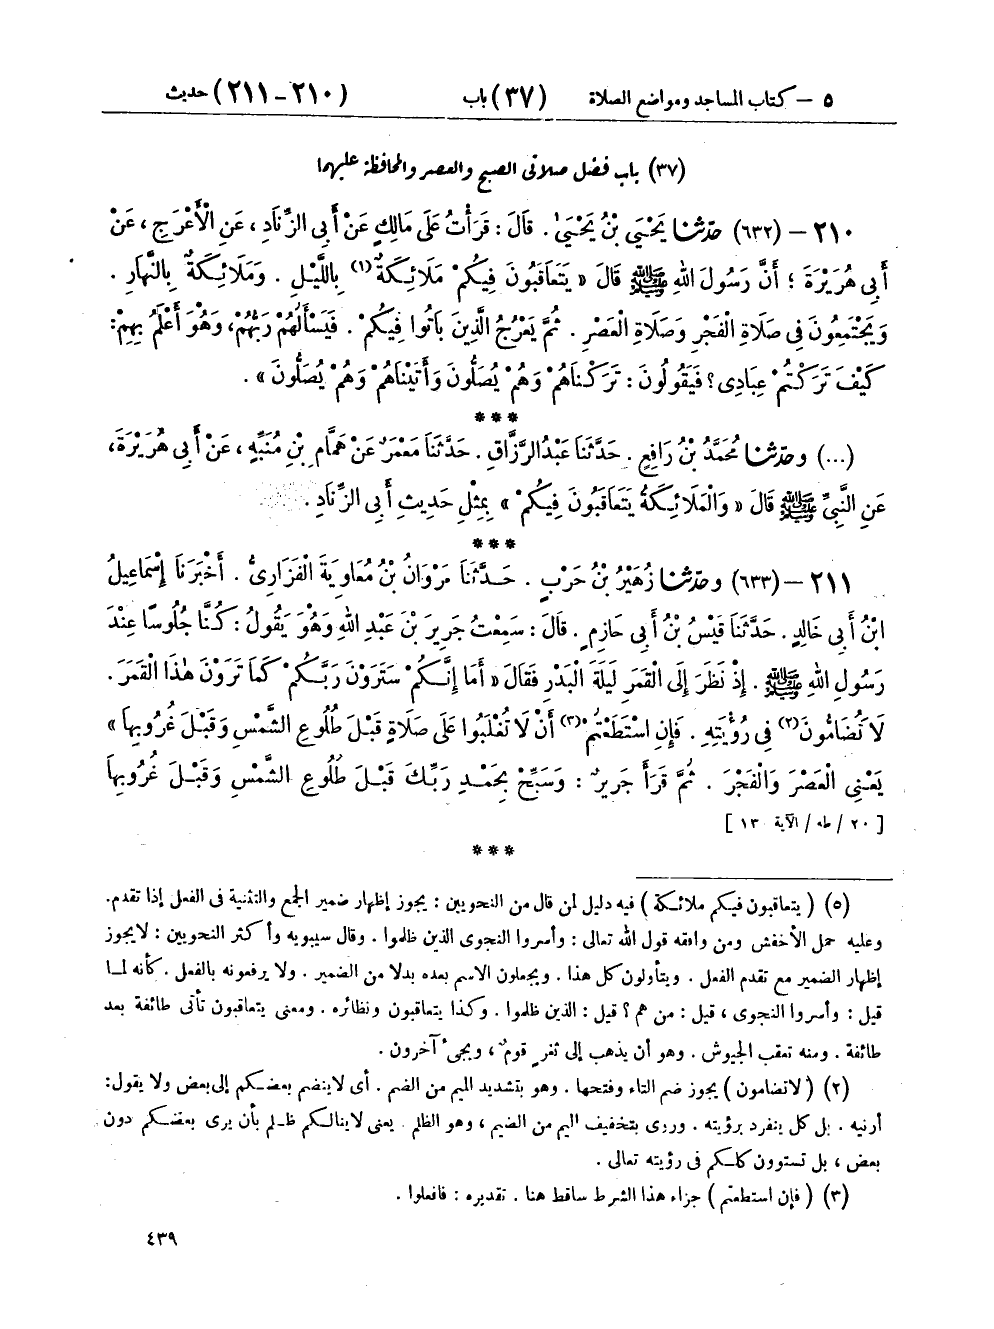 ٥ – كتاب المساجد ومواضع الصلاة (٣٧) باب (٢١٠-٢١١) حديث
(٣٧) باب فضل صلاتى الصبح والعصر والمحافظة عليهما
٢١٠ – (٦٣٢) حَدَّثَنَا يَحْيَىٰ بْنُ يَحْيَىٰ . قَالَ : قَرَأْتُ عَلَى مَالِكٍ عَنْ أَبِى الزِّنَادِ ، عَنِ الْأَعْرَجِ ، عَنْ
أَبِى هُرَيْرَةَ ؛ أَنَّ رَسُولَ اللهِ ﷺ قَالَ « يَتَعَاقَبُونَ فِيكُمْ مَلَائِكَةٌ(١) بِاللَّيْلِ . وَمَلَائِكَةٌ بِالنَّهَارِ .
وَيَجْتَمِعُونَ فِى صَلَاةِ الْفَجْرِ وَصَلَاةِ الْعَصْرِ . ثُمَّ يَعْرُجُ الَّذِينَ بَاتُوا فِيكُمْ . فَيَسْأَلُهُمْ رَبُّهُمْ، وَهُوَ أَعْلَمُ بِهِمْ:
كَيْفَ تَرَكْتُمْ عِبَادِى؟ فَيَقُولُونَ : تَرَكْنَاهُمْ وَهُمْ يُصَلُّونَ وَأَتَيْنَاهُمْ وَهُمْ يُصَلُّونَ » .
***
(...) وحَدَّثَنَا مُحَمَّدُ بْنُ رَافِعٍ . حَدَّثَنَا عَبْدُ الرَّزَّاقِ . حَدَّثَنَا مَعْمَرٌ عَنْ هَمَّامِ بْنِ مُنَبِّهٍ ، عَنْ أَبِى هُرَيْرَةَ،
عَنِ النَّبِىِّ ﷺ قَالَ « وَالْمَلَائِكَةُ يَتَعَاقَبُونَ فِيكُمْ » بِمِثْلِ حَدِيثِ أَبِى الزِّنَادِ .
***
٢١١ – (٦٣٣) وحَدَّثَنَا زُهَيْرُ بْنُ حَرْبٍ . حَدَّثَنَا مَرْوَانُ بْنُ مُعَاوِيَةَ الْفَزَارِىُّ . أَخْبَرَنَا إِسْمَاعِيلُ
ابْنُ أَبِى خَالِدٍ . حَدَّثَنَا قَيْسُ بْنُ أَبِى حَازِمٍ . قَالَ : سَمِعْتُ جَرِيرَ بْنَ عَبْدِ اللهِ وَهُوَ يَقُولُ : كُنَّا جُلُوسًا عِنْدَ
رَسُولِ اللهِ ﷺ . إِذْ نَظَرَ إِلَى الْقَمَرِ لَيْلَةَ الْبَدْرِ فَقَالَ « أَمَا إِنَّكُمْ سَتَرَوْنَ رَبَّكُمْ كَمَا تَرَوْنَ هٰذَا الْقَمَرَ .
لَا تُضَامُّونَ(٢) فِى رُؤْيَتِهِ . فَإِنِ اسْتَطَعْتُمْ(٣) أَنْ لَا تُغْلَبُوا عَلَى صَلَاةٍ قَبْلَ طُلُوعِ الشَّمْسِ وَقَبْلَ غُرُوبِهَا »
يَعْنِى الْعَصْرَ وَالْفَجْرَ . ثُمَّ قَرَأَ جَرِيرٌ : وَسَبِّحْ بِحَمْدِ رَبِّكَ قَبْلَ طُلُوعِ الشَّمْسِ وَقَبْلَ غُرُوبِهَا
[ ٢٠ / طه / الآية ١٣ ]
***
(٥) ( يتعاقبون فيكم ملائكة ) فيه دليل لمن قال من النحويين : يجوز إظهار ضمير الجمع والتثنية فى الفعل إذا تقدم.
وعليه حمل الأخفش ومن وافقه قول الله تعالى : وأسروا النجوى الذين ظلموا . وقال سيبويه وأكثر النحويين : لايجوز
إظهار الضمير مع تقدم الفعل . ويتأولون كل هذا . ويجعلون الاسم بعده بدلا من الضمير . ولا يرفعونه بالفعل . كأنه لما
قيل : وأسروا النجوى ، قيل : من هم ؟ قيل : الذين ظلموا . وكذا يتعاقبون ونظائره . ومعنى يتعاقبون تأتى طائفة بعد
طائفة . ومنه تعقب الجيوش . وهو أن يذهب إلى ثغر قومٌ ، ويجىء آخرون .
(٢) ( لاتضامون ) يجوز ضم التاء وفتحها . وهو بتشديد الميم من الضم . أى لاينضم بعضكم إلى بعض ولا يقول:
أرنيه . بل كل ينفرد برؤيته . وروى بتخفيف الميم من الضيم ، وهو الظلم . يعنى لاينالكم ظلم بأن يرى بعضكم دون
بعض ، بل تستوون كلكم فى رؤيته تعالى .
(٣) ( فإن استطعتم ) جزاء هذا الشرط ساقط هنا . تقديره : فافعلوا .
٤٣٩